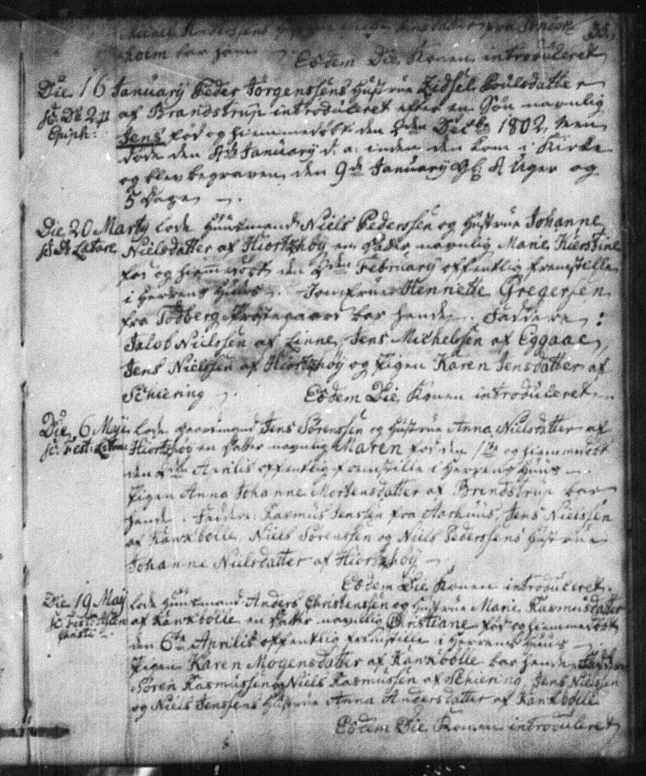 33.
holm bar ham
Eodem Die Konen introduceret
Die 16 January Peder Jørgenssens Hustrue Zidsel Poulsdatter
af Brandstrup introduceret efter en Søn navnlig
Epiph:
Jens fød og hiemmedøbt den Decbr 1802, men
døde den January inden den kom i Kirke
og blev begraven den 9de January Uger og
5 Dage
Die 20 Marty lode Huusmand Niels Pederssen og Hustrue Johanne
Lætare Nielsdatter af Hiortshøy en Datter navnlig Marie Kierstine
fød og hiemmedøbt den February offentlig fremstille
i Herrens Huus. Jomfrue Henriette Gregersen
fra Todberg Præstegaard bar hende. Faddere:
Jacob Nielssen af Linne, Jens Michelssen af Eggaae,
Jens Nielssen af Hiortshøy og Pigen Karen Jensdatter af
Schiering
Eodem Die Konen introduceret
Die 6 Maji lode Jens Sørenssen og Hustrue Anna Nielsdatter af
Hiortshøy en Datter navnlig Maren fød den og hiemmedøbt
den Aprilis offentlig fremstille i Herrens Huus
Pigen Anna Johanne Mortensdatter af Brandstrup bar
hende. Faddere: Rasmus Jensen fra Aarhuus, Jens Nielssen
af Kankbølle, Niels Sørenssen og Niels Pederssens Hustrue
Johanne Nielsdatter af Hiortshøy
Eodem Die Konen introduceret
Die 19 Maij lode Huusmand Anders Christenssen og Hustrue Marie Rasmusdatter
af Kankbølle en Datter navnlig Christiane fød og hiemmedøbt
den 6te Aprilis offentlig fremstille i Herrens Huus
Pigen Karen Mogensdatter af Kankbølle bar hende. Faddere
Søren Rasmussen og Niels Rasmussen af Schiering, Jens Nielssen
og Niels Jenssens Hustrue Anna Andersdatter af Kankbølle
Eodem Die Konen introduceret